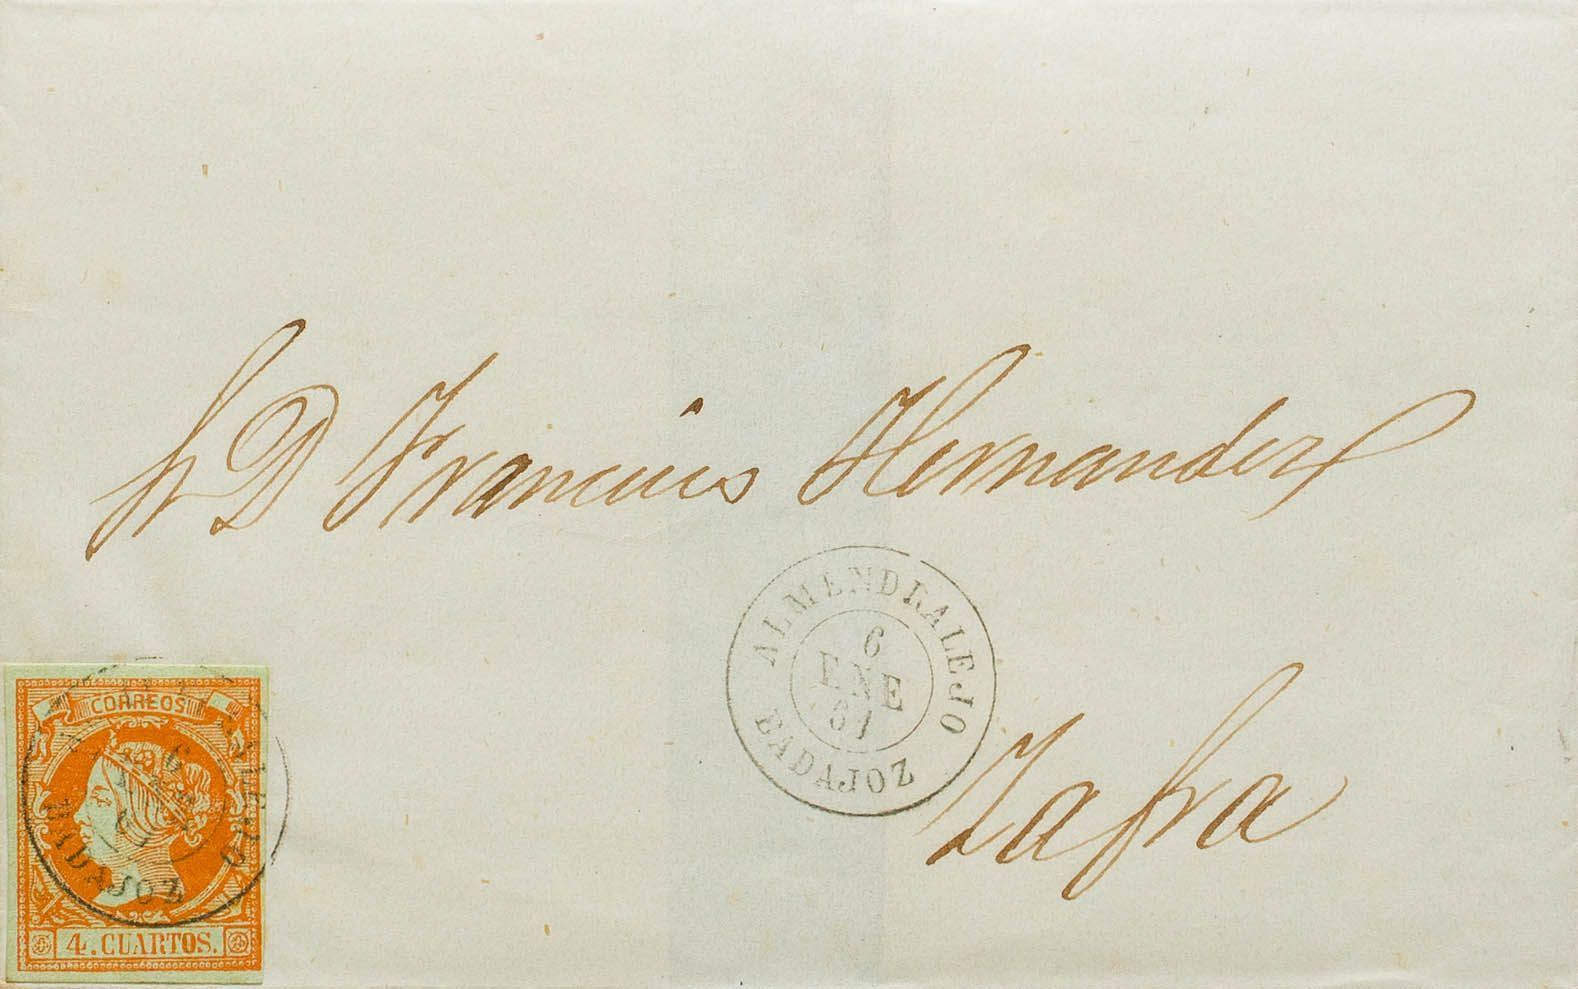 Sr D Francisco Hernandez
ALMENDRALEJO
6
ENE
61
BADAJOZ
Zafra
CORREOS
6
BADAJOZ
4. CUARTOS.